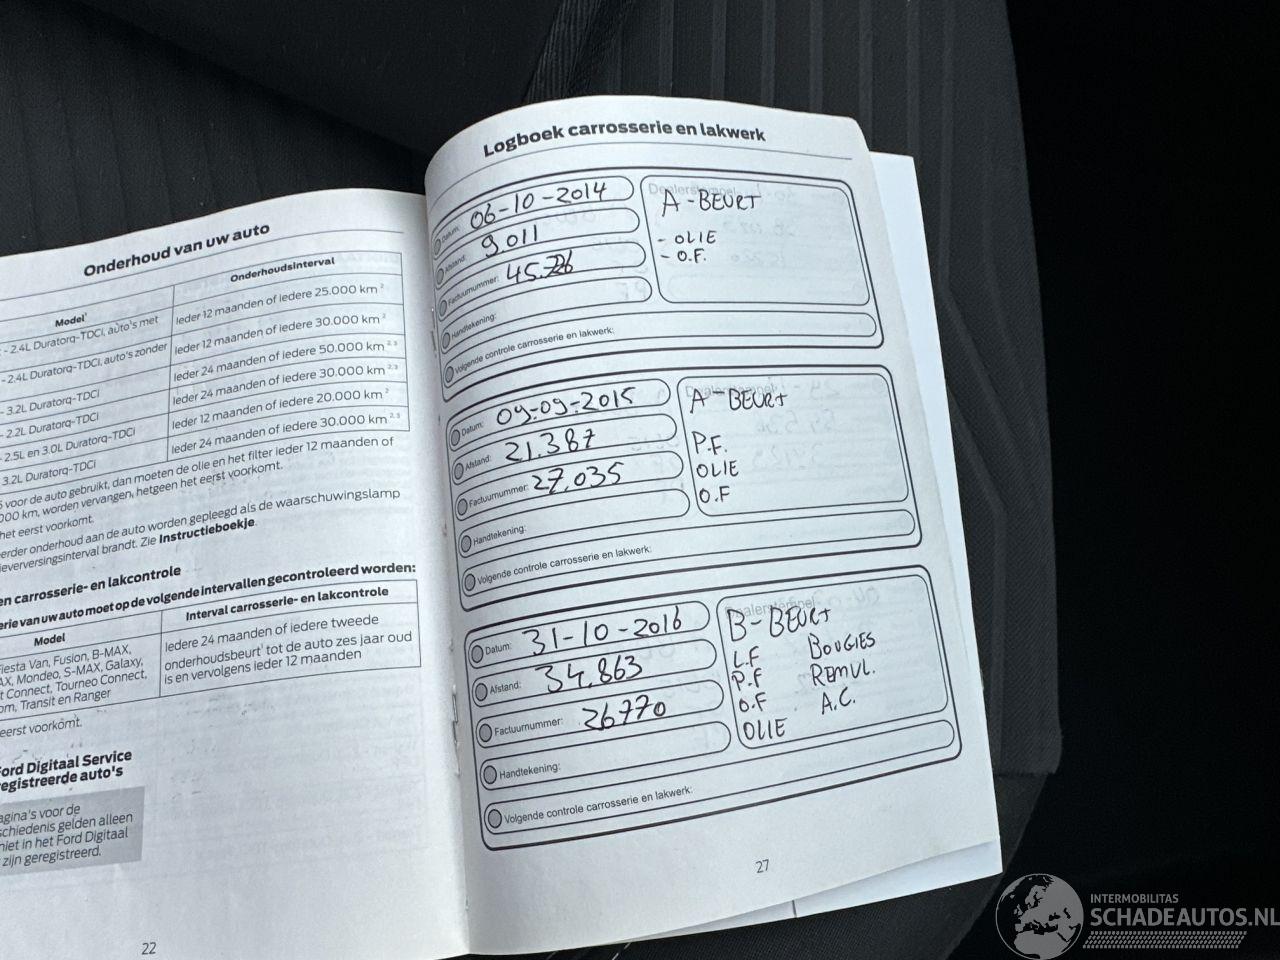 Onderhoud van uw auto
Model¹
Onderhoudsinterval
- 2.4L Duratorq-TDCi, auto's met
Ieder 12 maanden of iedere 25.000 km ²
- 2.4L Duratorq-TDCi, auto's zonder
Ieder 12 maanden of iedere 30.000 km ²
- 3.2L Duratorq-TDCi
Ieder 24 maanden of iedere 50.000 km ²·³
- 2.2L Duratorq-TDCi
Ieder 24 maanden of iedere 30.000 km ²·³
- 2.5L en 3.0L Duratorq-TDCi
Ieder 12 maanden of iedere 20.000 km ²
3.2L Duratorq-TDCi
Ieder 24 maanden of iedere 30.000 km ²·³
voor de auto gebruikt, dan moeten de olie en het filter ieder 12 maanden of
000 km, worden vervangen, hetgeen het eerst voorkomt.
het eerst voorkomt.
eerder onderhoud aan de auto worden gepleegd als de waarschuwingslamp
ieverversingsinterval brandt. Zie Instructieboekje.
en carrosserie- en lakcontrole
erie van uw auto moet op de volgende intervallen gecontroleerd worden:
Model
Interval carrosserie- en lakcontrole
Fiesta Van, Fusion, B-MAX,
AX, Mondeo, S-MAX, Galaxy,
t Connect, Tourneo Connect,
om, Transit en Ranger
Iedere 24 maanden of iedere tweede
onderhoudsbeurt¹ tot de auto zes jaar oud
is en vervolgens ieder 12 maanden
eerst voorkomt.
Ford Digitaal Service
egistreerde auto's
agina's voor de
schiedenis gelden alleen
niet in het Ford Digitaal
zijn geregistreerd.
22
Logboek carrosserie en lakwerk
Datum: 06-10-2014
Afstand: 9.011
Factuurnummer: 45.226
Handtekening:
Volgende controle carrosserie en lakwerk:
Dealerstempel:
A-BEURT
- OLIE
- O.F.
Datum: 09-09-2015
Afstand: 21.387
Factuurnummer: 27.035
Handtekening:
Volgende controle carrosserie en lakwerk:
Dealerstempel:
A-BEURT
P.F.
OLIE
O.F
Datum: 31-10-2016
Afstand: 34.863
Factuurnummer: 26770
Handtekening:
Volgende controle carrosserie en lakwerk:
Dealerstempel:
B-BEURT
L.F BOUGIES
P.F REMVL.
O.F A.C.
OLIE
27
INTERMOBILITAS
SCHADEAUTOS.NL